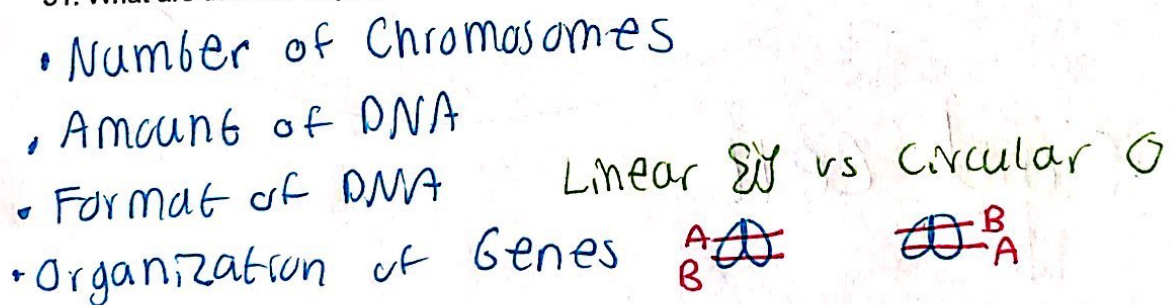 • Number of Chromosomes
• Amount of DNA
• Format of DNA Linear vs Circular
• Organization of Genes A B B A